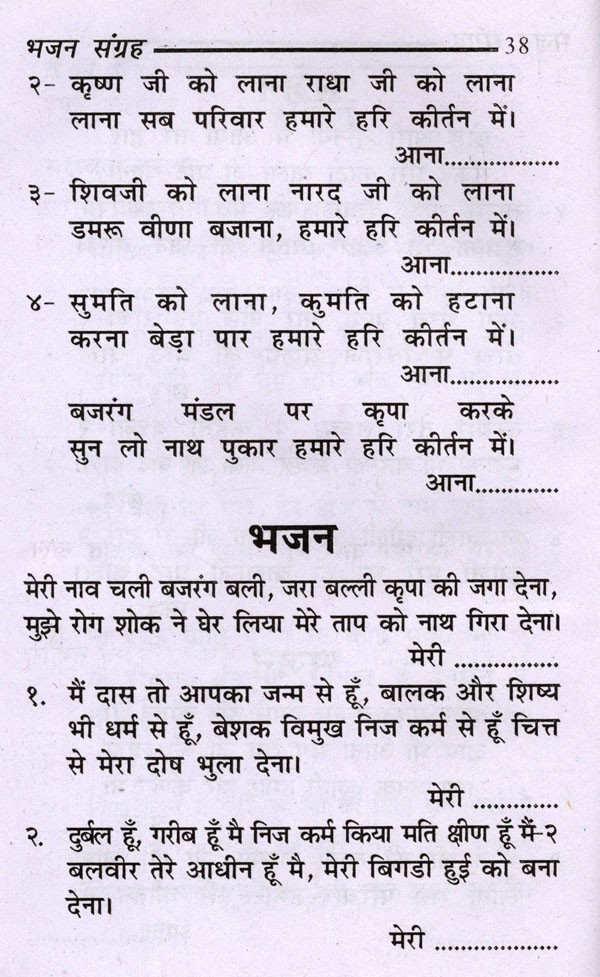 भजन संग्रह 38
२- कृष्ण जी को लाना राधा जी को लाना
लाना सब परिवार हमारे हरि कीर्तन में।
आना...............
३- शिवजी को लाना नारद जी को लाना
डमरू वीणा बजाना, हमारे हरि कीर्तन में।
आना...............
४- सुमति को लाना, कुमति को हटाना
करना बेड़ा पार हमारे हरि कीर्तन में।
आना...............
बजरंग मंडल पर कृपा करके
सुन लो नाथ पुकार हमारे हरि कीर्तन में।
आना............
भजन
मेरी नाव चली बजरंग बली, जरा बल्ली कृपा की जगा देना,
मुझे रोग शोक ने घेर लिया मेरे ताप को नाथ गिरा देना।
मेरी ..............
१. मैं दास तो आपका जन्म से हूँ, बालक और शिष्य
भी धर्म से हूँ, बेशक विमुख निज कर्म से हूँ चित्त
से मेरा दोष भुला देना।
मेरी ...............
२. दुर्बल हूँ, गरीब हूँ मै निज कर्म किया मति क्षीण हूँ मैं-२
बलवीर तेरे आधीन हूँ मै, मेरी बिगडी हुई को बना
देना।
मेरी .................